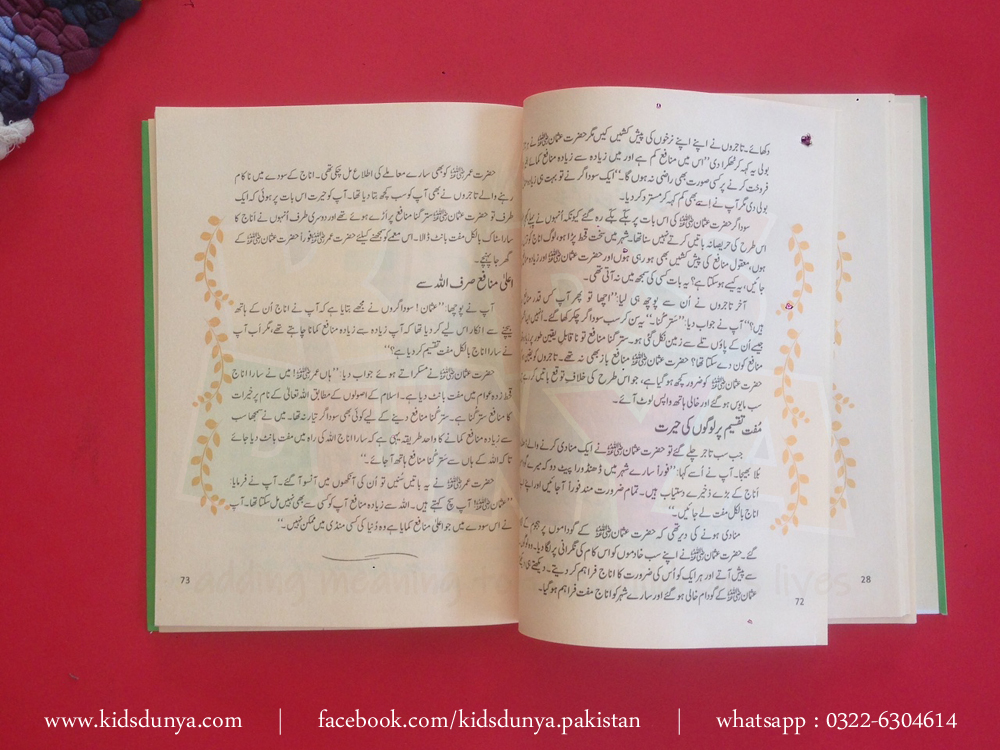 دکھائے۔ تاجروں نے اپنے اپنے نرخوں کی پیش کشیں کیں مگر حضرت عثمانؓ نے
بولی یہ کہہ کر ٹھکرا دی ”اس میں منافع کم ہے اور میں زیادہ سے زیادہ منافع کمائے
فروخت کرنے پر کسی صورت بھی راضی نہ ہوں گا۔“ ایک سوداگر نے تو بہت ہی زیادہ
بولی دی مگر آپ نے اسے بھی کم کہہ کر مسترد کر دیا۔
سوداگر حضرت عثمانؓ کی اس بات پر ہکے بکے رہ گئے کیونکہ انہوں نے پہلے
اس طرح کی حریصانہ باتیں کرتے نہیں سنا تھا۔ شہر میں سخت قحط پڑا ہو، لوگ اناج کو
ہوں، معقول منافع کی پیش کشیں بھی ہو رہی ہوں اور حضرت عثمانؓ اور زیادہ
جائیں، یہ کیسے ہو سکتا ہے؟ یہ بات کسی کی سمجھ میں نہ آتی تھی۔
آخر تاجروں نے اُن سے پوچھ ہی لیا: ”اچھا تو پھر آپ کس قدر
ہیں؟“ آپ نے جواب دیا: ”ستر گنا۔“ یہ سن کر سب سوداگر چکر کھا گئے۔ انہیں
جیسے اُن کے پاؤں تلے سے زمین نکل گئی ہو۔ ستر گنا منافع تو ناقابل یقین طور پر
منافع کون دے سکتا تھا؟ حضرت عثمانؓ منافع باز بھی نہ تھے۔ تاجروں کو
عثمانؓ کو ضرور کچھ ہو گیا ہے، جو اس طرح کی خلاف توقع باتیں کرتے
سب مایوس ہو گئے اور خالی ہاتھ واپس لوٹ آئے۔
مُفت تقسیم پر لوگوں کی حیرت
جب سب تاجر چلے گئے تو حضرت عثمانؓ نے ایک منادی کرنے والے
بُلا بھیجا۔ آپ نے اُسے کہا: ”فوراً سارے شہر میں ڈھنڈورا پیٹ دو کہ میرے
اناج کے بڑے ذخیرے دستیاب ہیں۔ تمام ضرورت مند فوراً آ جائیں اور اپنے
اناج بالکل مفت لے جائیں۔“
منادی ہونے کی دیر تھی کہ حضرت عثمانؓ کے گوداموں پر ہجوم کے
گئے۔ حضرت عثمانؓ نے اپنے سب خادموں کو اس کام کی نگرانی پر لگا دیا۔ وہ لوگوں
سے پیش آتے اور ہر ایک کو اُس کی ضرورت کا اناج فراہم کر دیتے۔ دیکھتے ہی
عثمانؓ کے گودام خالی ہو گئے اور سارے شہر کو اناج مفت فراہم ہو گیا۔
72
28
حضرت عمرؓ کو بھی سارے معاملے کی اطلاع مل چکی تھی۔ اناج کے سودے میں ناکام
رہنے والے تاجروں نے بھی آپ کو سب کچھ بتا دیا تھا۔ آپ کو حیرت اس بات پر ہوئی کہ ایک
طرف تو حضرت عثمانؓ ستر گنا منافع پر اڑے ہوئے تھے اور دوسری طرف اُنہوں نے اناج کا
سارا سٹاک بالکل مفت بانٹ ڈالا۔ اس معمے کو سمجھنے کیلئے حضرت عمرؓ فوراً حضرت عثمانؓ کے
گھر جا پہنچے۔
اعلیٰ منافع صرف اللہ سے
آپ نے پوچھا: ”عثمان! سوداگروں نے مجھے بتایا ہے کہ آپ نے اناج اُن کے ہاتھ
بیچنے سے انکار اس لیے کر دیا تھا کہ آپ زیادہ سے زیادہ منافع کمانا چاہتے تھے، مگر اب آپ
نے سارا اناج بالکل مفت تقسیم کر دیا ہے؟“
حضرت عثمانؓ نے مسکراتے ہوئے جواب دیا: ”ہاں عمرؓ! میں نے سارا اناج
قحط زدہ عوام میں مفت بانٹ دیا ہے۔ اسلام کے اصولوں کے مطابق اللہ تعالیٰ کے نام پر خیرات
کا منافع ستر گنا ہے۔ ستر گنا منافع دینے کے لیے کوئی بھی سوداگر تیار نہ تھا۔ میں نے سمجھا سب
سے زیادہ منافع کمانے کا واحد طریقہ یہی ہے کہ سارا اناج اللہ کی راہ میں مفت بانٹ دیا جائے
تاکہ اللہ کے ہاں سے ستر گنا منافع ہاتھ آ جائے۔“
حضرت عمرؓ نے یہ باتیں سنیں تو اُن کی آنکھوں میں آنسو آ گئے۔ آپ نے فرمایا:
”عثمانؓ! آپ سچ کہتے ہیں۔ اللہ سے زیادہ منافع آپ کو کسی سے بھی نہیں مل سکتا تھا۔ آپ
نے اس سودے میں جو اعلیٰ منافع کمایا ہے وہ دُنیا کی کسی منڈی میں ممکن نہیں۔“
73
adding meaning to lives
www.kidsdunya.com | facebook.com/kidsdunya.pakistan | whatsapp : 0322-6304614